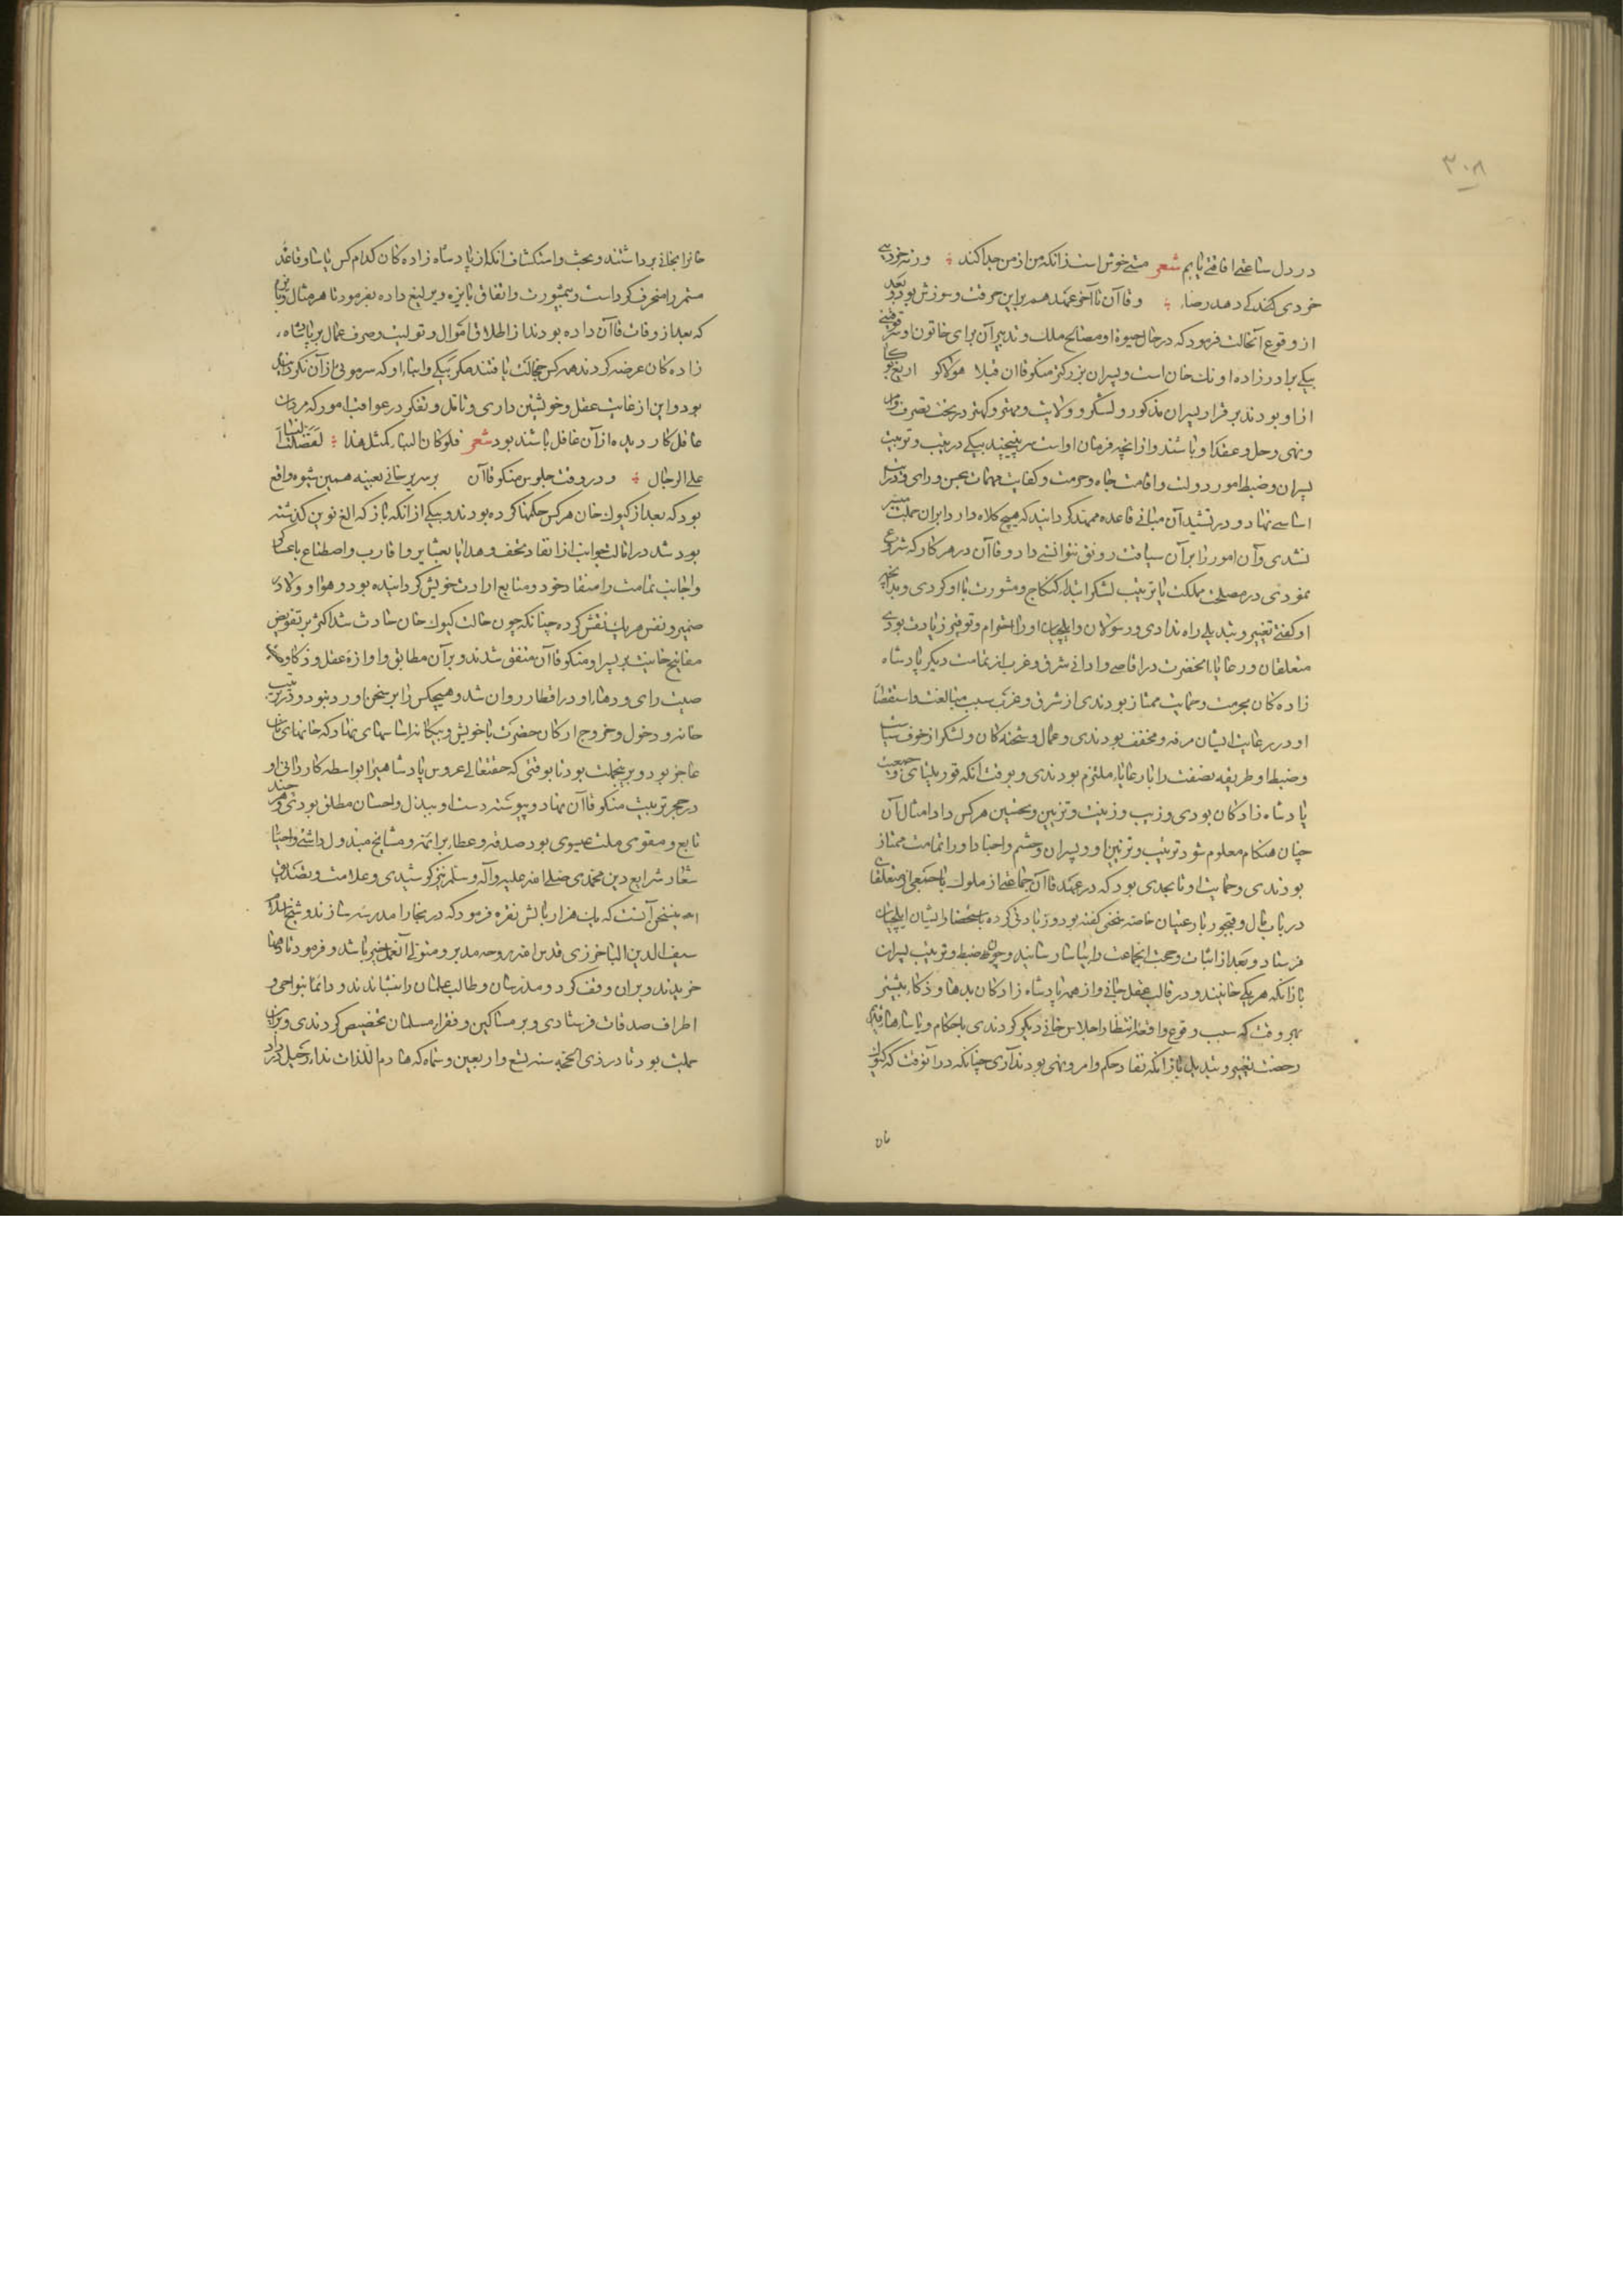 ۳۰۸
در دل ساعتی افاقتی یابم شعر مستی خوش است زانکه من از من جدا کند ورنه بخود بی
خردی کند کی دهد رضا وقاآن تا آخر عهد هم برین حرقت و سوزش بود و بعد
از وقوع آن حالت فرمود که در حال حیوة او مصالح ملک و تدبیر آن برای خاتون او سرقوقیتی
بیکی برادر زاده اونک خان است و پسران بزرکتر منکوقاآن قبلا هولاکو اریغ بوکا
ازو بودند برقرار پسران مذکور و لشکر و ولایت و مهتر و کهتر در تحت تصرف امر
و نهی و حل و عقد او باشند و از انچه فرمان او است سر نپیچند بیکی در تربیت و ترتیب
پسران و ضبط امور دولت و اقامت جاه و حرمت و کفایت مهمات بحسن رای و درایت
اساسی نهاد و در تشیید آن مبانی قاعده ممهد کردانید که هیچ کلاه دار را بران جملت میسر
نشدی و آن امور را بر آن سیاقت رونق نتوانستی داد و قاآن در هر کار که شروع
نمودی در مصلحت مملکت یا ترتیب لشکر ابتدا کنکاج و مشورت با او کردی و بدانچه
او کفتی تغییر و تبدیلی راه ندادی و رسولان و ایلچیان او را احترام و توقیر زیادت بودی
متعلقان و رعایاء آنحضرت در اقاصی و ادانی شرق و غرب از تمامت دیکر پادشاه
زادکان بحرمت و حمایت ممتاز بودندی از شرق و غرب سبب مبالغت و استقصاء
او در رعایت ایشان مرفه و مخفف بودندی و عمال و شحنکان و لشکر از خوف سیاست
و ضبط او طریقه نصفت را با رعایا ملتزم بودندی و بوقت آنکه قوریلتای و جمعیت
پادشاه زادکان بودی و زیب و زینت و تزیین و تحسین هر کس را و امثال آن
چنان هنکام معلوم شود ترتیب و تزیین او و پسران و حشم و اجناد او را تمامت ممتاز
بودندی و حمایت او تا بحدی بود که در عهد قاآن جماعتی از ملوک با جمعی از متعلقان
در باب مال و قبجور با رعیتان خاصه سخنی کفته بود و زیادتی کرده باستحضار ایشان ایلچیان
فرستاد و بعد از اثبات و حجت آنجماعت را بیاسا رسانید و وجوه ضبط و تربیت پسران
با زانکه هر یکی خانیند و در قالب عقل جانی و از همه پادشاه زادکان بدها و ذکاء بیشتر
بهر وقت که سبب وقوع واقعه انتظار اجلاس خانی دیکر کردندی باحکام و یاساها قدیم
رخصت تغییر و تبدیل با زانکه نفاذ حکم و امر و نهی بود ندادی چنانکه در آنوقت که کیوک
خان
خانرا بخانی برداشتند و بحث و استکشاف آنکه از پادشاه زادکان کدام کس یاسا و قاعده
مستمر را منحرف کردست و بمشورت و اتفاق پایزه و یرلیغ داده بفرمود تا هر مثال و پایزه
که بعد از وفات قاآن داده بودند از اطلاق اموال و تولیت و صرف عمال بر پادشاه
زادکان عرضه کردند همه کس خجالت یافتند مکر بیکی و ابناء او که سر مویی از آن نکردیده
بود و این از غایت عقل و خویشتن داری و تأمل و تفکر در عواقب امور که مردان
عاقل کار دیده از آن غافل باشند بود شعر فلو کان النساء کمثل هذا لفضلت النساء
علی الرجال و در وقت جلوس منکوقاآن بر سریر خانی بعینه همین شیوه واقع
بود که بعد از کیوک خان هر کس حکمها کرده بودند و بیکی از انکه باز که الغ نوین کذشته
بود شد در امالت جوانب از انفاد تحف و هدایا بعشایر و اقارب و اصطناع با عساکر
و اجانب تمامت را منقاد خود و متابع ارادت خویش کردانیده بود و هوا و ولاء
ضمیر و نفس هر یک نقش کرده چنانکه چون حالت کیوک خان حادث شد اکثر بر تفویض
مفاتیح خانیت بر پسر او منکوقاآن متفق شدند و بر آن مطابق و آوازه عقل و ذکاء و
صیت رای و دهاء او در اقطار روان شد و هیچکس را بر سخن او رد نبود و در ترتیب
خانه و دخول و خروج ارکان حضرت با خویش و بیکانه اساسهای نهاد که خانهای
عاجز بود و برینجملت بود تا بوقتی که حقتعالی عروس پادشاهیرا بواسطه کاردانی او
در حجر تربیت منکوقاآن نهاد و پیوسته دست او ببذل و احسان مطلق بودی و هر چند
تابع و مقوی ملت عیسوی بود صدقه و عطا بر ائمه و مشایخ مبذول داشتی و احیاء
شعار شرایع دین محمدی صلی الله علیه وآله وسلم نیز کوشیدی و علامت و تصدیق
این سخن آنست که یک هزار بالش نقره فرمود که در بخارا مدرسه سازند و شیخ الاسلام
سیف الدین الباخرزی قدس الله روحه مدبر و متولی آنعمل خیر باشد و فرمود تا دیهها
خریدند و بران وقف کرد و مدرسان و طالب علمان را بنشاندند و دائما بنواحی و
اطراف صدقات فرستادی و بر مساکین و فقراء مسلمان تخصیص کردندی و بران
جملت بود تا در ذی الحجه سنه تسع و اربعین و ستمایه که هادم اللذات نداء رحیل در داد